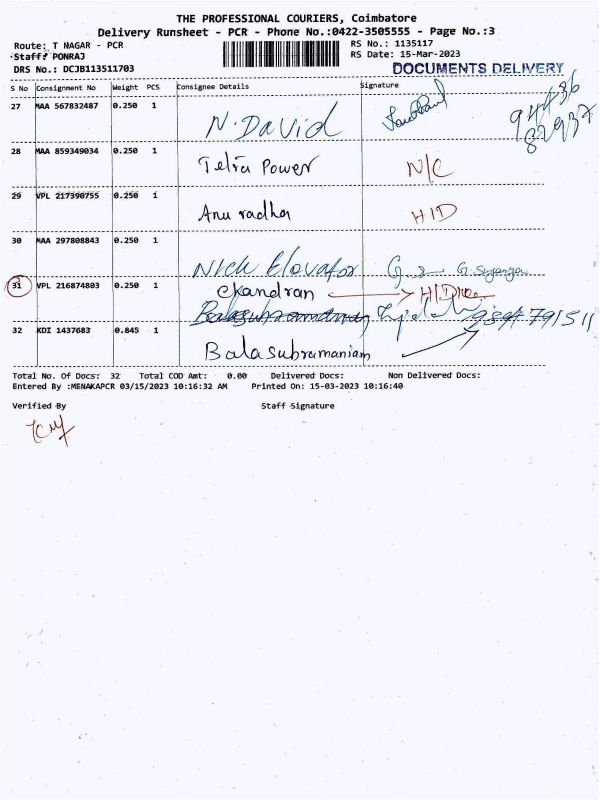 THE PROFESSIONAL COURIERS, Coimbatore
Delivery Runsheet - PCR - Phone No.:0422-3505555 - Page No.:3
Route: T NAGAR - PCR RS No.: 1135117
Staff: PONRAJ RS Date: 15-Mar-2023
DRS No.: DCJB113511703 DOCUMENTS DELIVERY
S No Consignment No Weight PCS Consignee Details Signature
27 MAA 567832487 0.250 1 N. David 94436
82937
28 MAA 859349034 0.250 1 Telra Power N/C
29 VPL 217390755 0.250 1 Anuradha HID
30 MAA 297808843 0.250 1 Nick Elavator
31 VPL 216874803 0.250 1 Ckandran HID
Balasubramaniam
32 KDI 1437683 0.845 1 Balasubramaniam
Total No. Of Docs: 32 Total COD Amt: 0.00 Delivered Docs: Non Delivered Docs:
Entered By :MENAKAPCR 03/15/2023 10:16:32 AM Printed On: 15-03-2023 10:16:40
Verified By Staff Signature